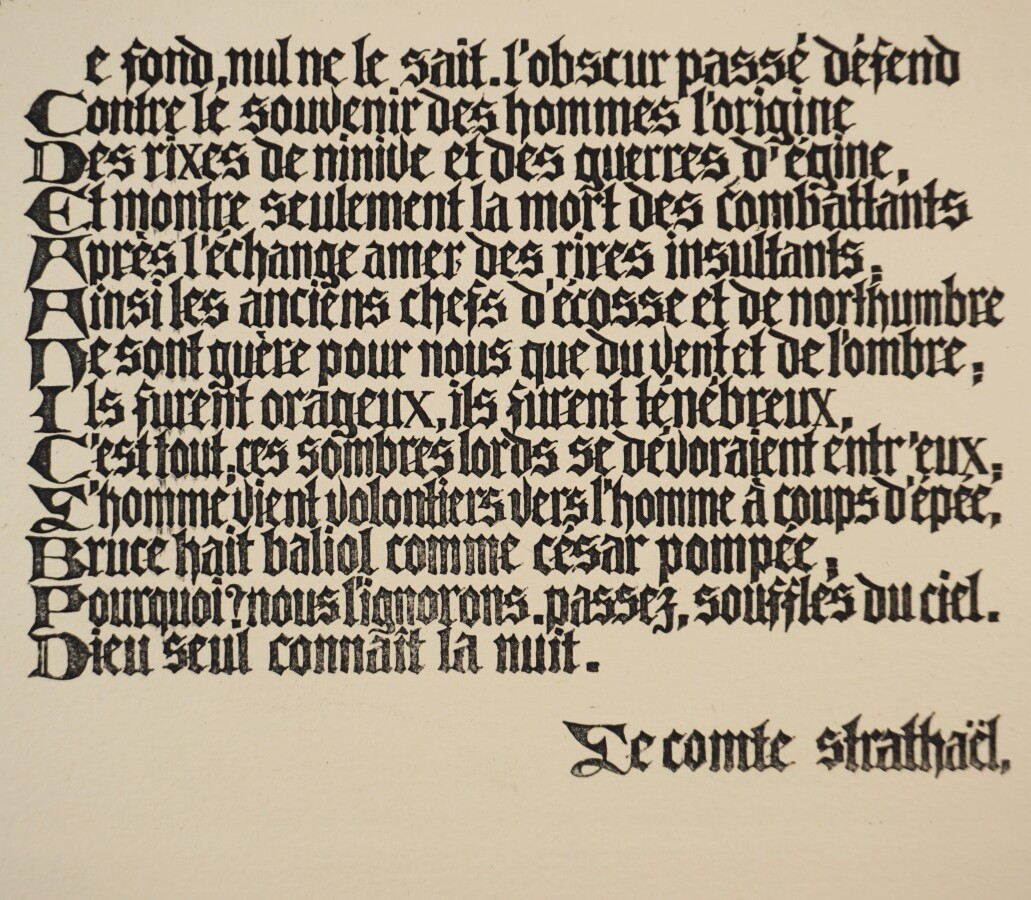 e fond, nul ne le sait. l'obscur passé défend
Contre le souvenir des hommes l'origine
Des rixes de ninive et des guerres d'égine,
Et montre seulement la mort des combattants
Après l'échange amer des rires insultants;
Ainsi les anciens chefs d'écosse et de northumbre
Ne sont guère pour nous que du vent et de l'ombre;
Ils furent orageux, ils furent ténébreux,
C'est tout; ces sombres lords se dévoraient entr'eux;
L'homme vient volontiers vers l'homme à coups d'épée;
Bruce hait baliol comme césar pompée;
Pourquoi? nous l'ignorons. passez, souffles du ciel.
Dieu seul connaît la nuit.
Le comte strathaël,